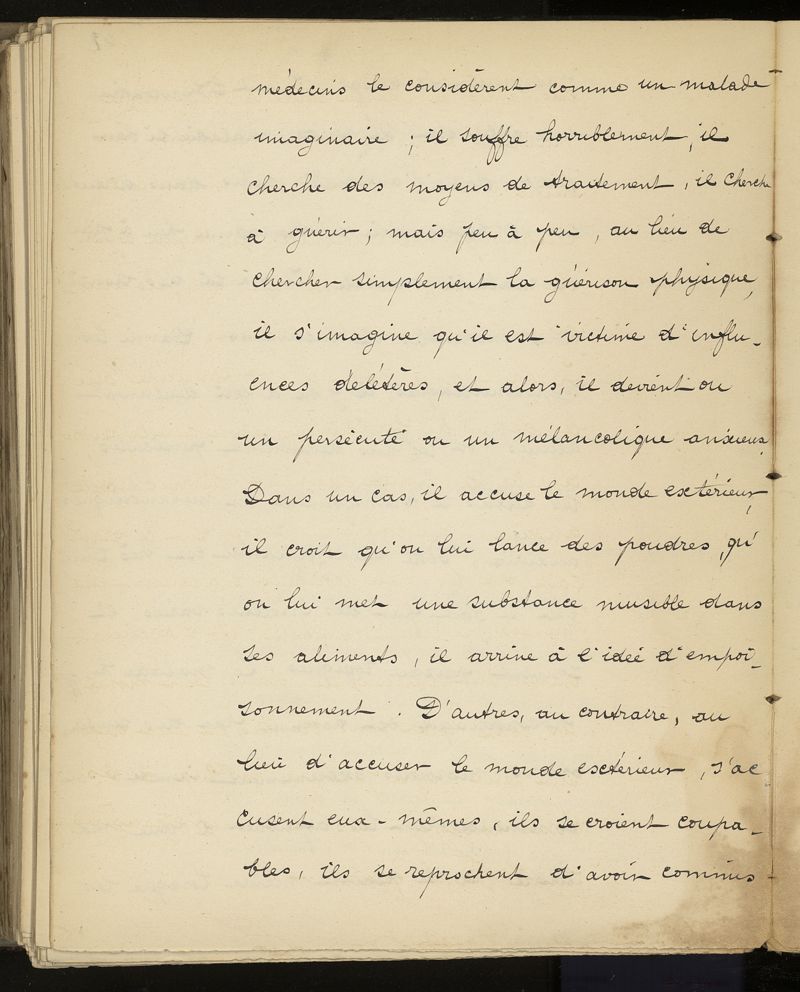 médecins le considèrent comme un malade
imaginaire ; il souffre horriblement, il
cherche des moyens de traitement, il cherche
à guérir ; mais peu à peu, au lieu de
chercher simplement la guérison physique,
il s'imagine qu'il est victime d'influ-
ences délétères, et alors, il devient ou
un persécuté ou un mélancolique anxieux.
Dans un cas, il accuse le monde extérieur,
il croit qu'on lui lance des poudres, qu'
on lui met une substance nuisible dans
ses aliments, il arrive à l'idée d'empoi-
sonnement. D'autres, au contraire, au
lieu d'accuser le monde extérieur, s'ac
cusent eux-mêmes, ils se croient coupa-
bles, ils se reprochent d'avoir commis